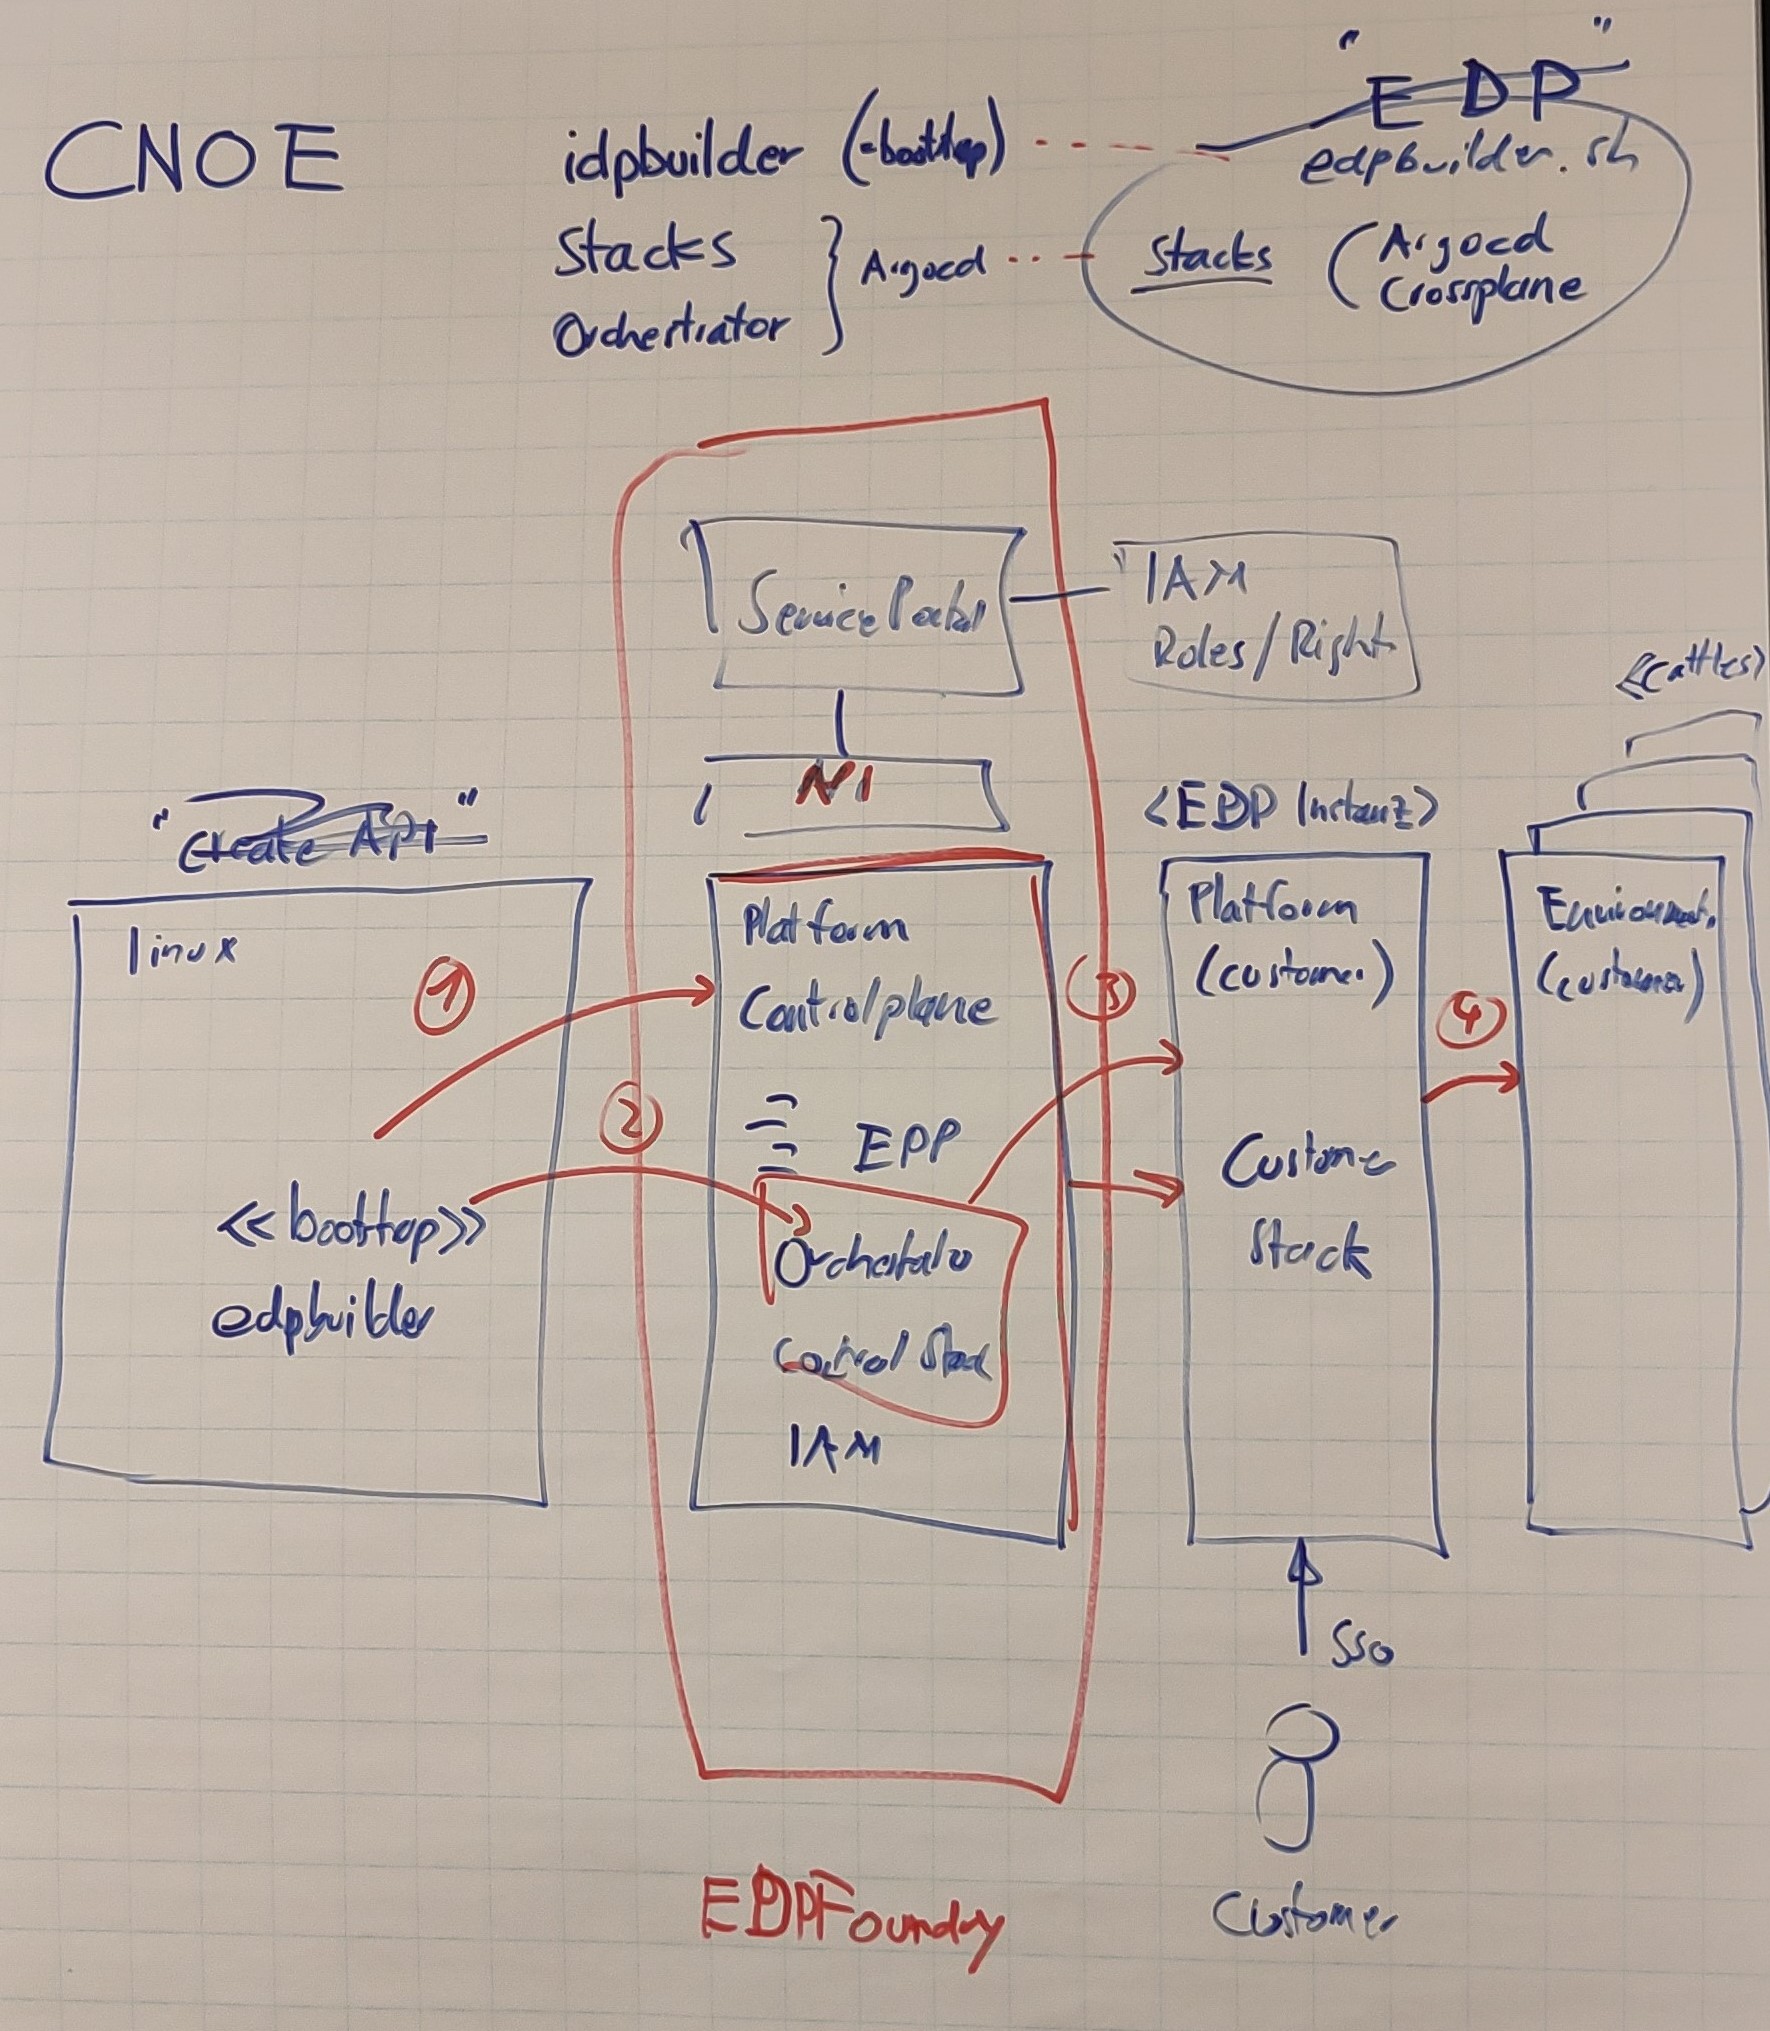 CNOE
idpbuilder (=bootstrap)
Stacks
Orchestrator
} Argocd
" EDP "
edpbuilder.sh
Stacks
(Argocd
Crossplane
Service Portal
IAM
Roles/Right
<<cattles>
"Create API"
linux
①
<<boottap>>
edpbuilder
②
Platform
Controlplane
EPP
Control Stack
IAM
③
<EDP Instanz>
Platform
(customer)
Customer
Stack
④
(customer)
SSO
Customer
EDPFoundry